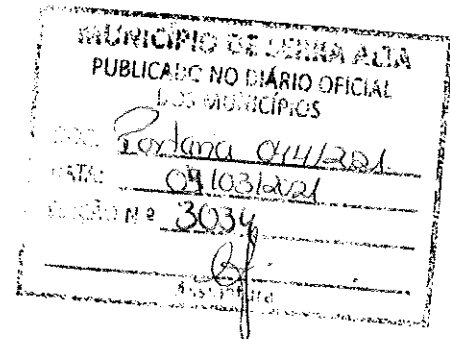 MUNICÍPIO DE SERRA ALTA
PUBLICADO NO DIÁRIO OFICIAL
DOS MUNICÍPIOS
Portaria 044/2021
DATA: 09/03/2021
EDIÇÃO Nº 3034
Assinatura